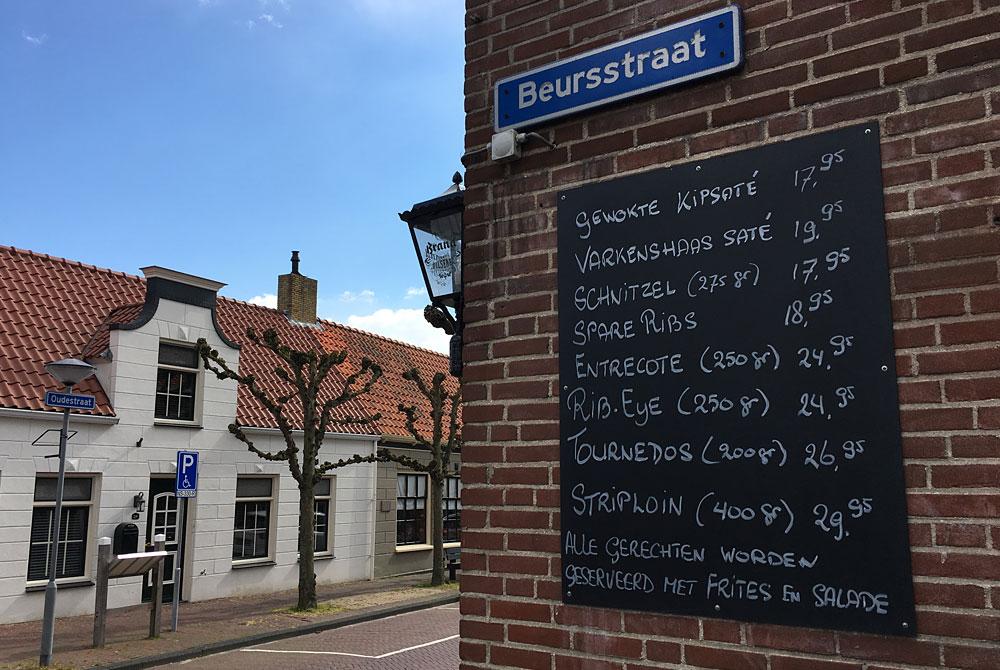 Beursstraat
GEWOKTE KIPSATÉ 17,95
VARKENSHAAS SATÉ 19,95
SCHNITZEL (275 gr) 17,95
SPARE RIBS 18,95
ENTRECOTE (250 gr) 24,95
RIB.EYE (250 gr) 24,95
TOURNEDOS (200 gr) 26,95
STRIPLOIN (400 gr) 29,95
ALLE GERECHTEN WORDEN
GESERVEERD MET FRITES EN SALADE
Brand
Oudestraat
P